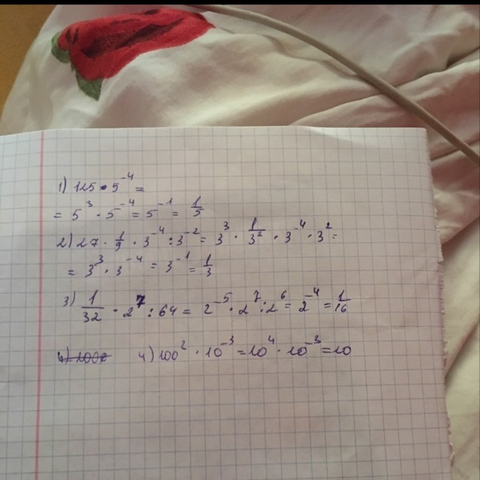 1) 125 · 5⁻⁴ =
= 5³ · 5⁻⁴ = 5⁻¹ = 1/5
2) 27 · 1/9 · 3⁻⁴ : 3⁻² = 3³ · 1/3² · 3⁻⁴ · 3² =
= 3³ · 3⁻⁴ = 3⁻¹ = 1/3
3) 1/32 · 2⁷ : 64 = 2⁻⁵ · 2⁷ : 2⁶ = 2⁻⁴ = 1/16
4) 100² · 10⁻³ = 10⁴ · 10⁻³ = 10